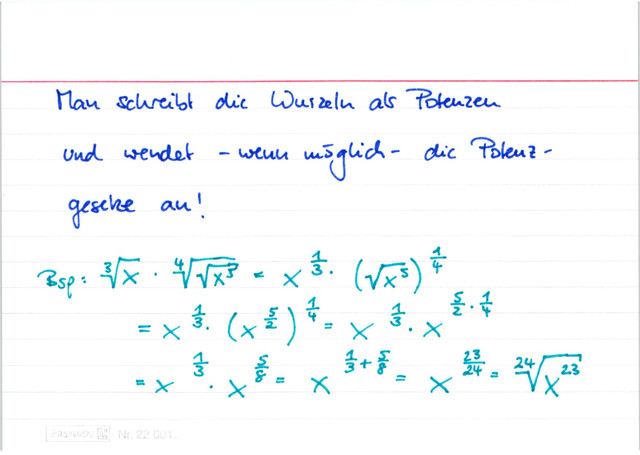 Man schreibt die Wurzeln als Potenzen
und wendet - wenn möglich - die Potenz-
gesetze an!
Bsp: ∛x · ∜(√(x⁵)) = x^(1/3) · (√(x⁵))^(1/4)
= x^(1/3) · (x^(5/2))^(1/4) = x^(1/3) · x^(5/2 · 1/4)
= x^(1/3) · x^(5/8) = x^(1/3 + 5/8) = x^(23/24) = ²⁴√(x²³)